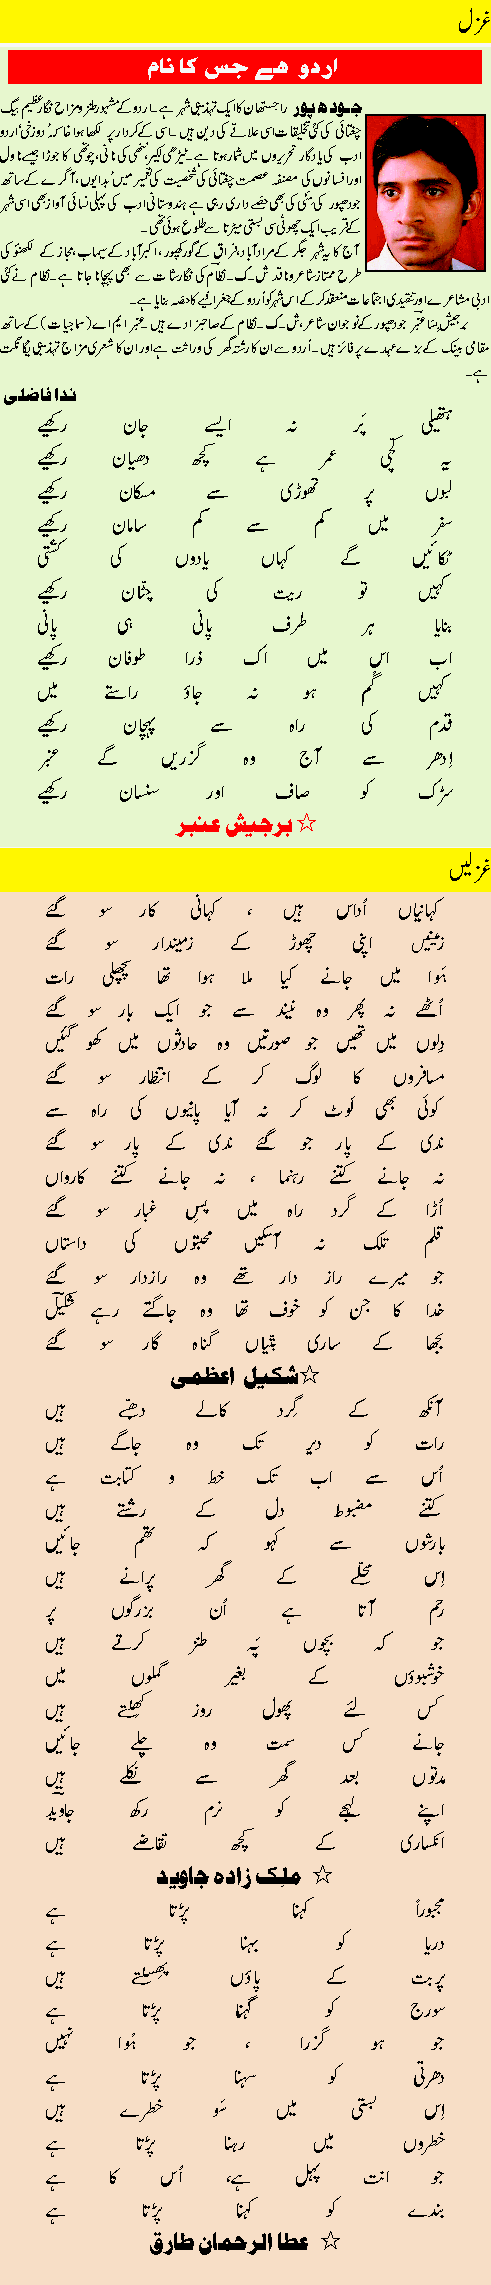 غزل
اردو ھے جس کا نام
جودھپور راجستھان کا ایک تہذیبی شہر ہے۔ اردو کے مشہور طنز و مزاح نگار عظیم بیگ
چغتائی کی کئی تخلیقات اسی علاقے کی دین ہیں۔ اسی کے کردار پر لکھا ہوا خاکہ ’دوزخی‘ اردو
ادب کی یادگار تحریروں میں شمار ہوتا ہے۔ ٹیڑھی لکیر، ننھی کی نانی، چوتھی کا جوڑا جیسے ناول
اور افسانوں کی مصنفہ عصمت چغتائی کی شخصیت کی تعمیر میں بدایوں، آگرے کے ساتھ
جودھپور کی مٹی کی بھی حصے داری رہی ہے ہندوستانی ادب کی پہلی نسائی آواز بھی اسی شہر
کے قریب ایک چھوٹی سی بستی میڑتا سے طلوع ہوئی تھی۔
آج کا یہ شہر جگر کے مرادآباد، فراق کے گورکھپور، اکبرآباد کے سیماب، مجاز کے لکھنؤ کی
طرح ممتاز شاعر و ناقد ش ک۔ نظام کی نگارشات سے بھی پہچانا جانا ہے۔ نظام نے کئی
ادبی مشاعرے اور تنقیدی اجتماعات منعقد کر کے اس شہر کو اردو کے جغرافیے کا حصہ بنایا ہے۔
برجیش عنبر جودھپور کے نوجوان شاعر، ش ک۔ نظام کے صاحبزادے ہیں۔ عنبر ایم اے (سماجیات) کے ساتھ
مقامی بینک کے بڑے عہدے پر فائز ہیں۔ اردو سے ان کا رشتہ گھر کی وراثت ہے اور ان کا شعری مزاج تہذیبی یگانگت
ہے۔
ندا فاضلی
ہتھیلی پر نہ ایسے جان رکھیے
یہ کچی عمر ہے کچھ دھیان رکھیے
لبوں پر تھوڑی سے مسکان رکھیے
سفر میں کم سے کم سامان رکھیے
ٹکائیں گے کہاں یادوں کی کشتی
کہیں تو ریت کی چٹان رکھیے
بنایا ہر طرف پانی ہی پانی
اب اس میں اک ذرا طوفان رکھیے
کہیں گم ہو نہ جاؤ راستے میں
قدم کی راہ سے پہچان رکھیے
اِدھر سے آج وہ گزریں گے عنبر
سڑک کو صاف اور سنسان رکھیے
☆ برجیش عنبر
غزلیں
کہانیاں اُداس ہیں ، کہانی کار سو گئے
زمینیں اپنی چھوڑ کے زمیندار سو گئے
ہَوا میں جانے کیا ملا ہوا تھا پچھلی رات
اُٹھے نہ پھر وہ نیند سے جو ایک بار سو گئے
دِلوں میں تھیں جو صورتیں وہ حادثوں میں کھو گئیں
مسافروں کا لوگ کر کے انتظار سو گئے
کوئی بھی لَوٹ کر نہ آیا پانیوں کی راہ سے
ندی کے پار جو گئے ندی کے پار سو گئے
نہ جانے کتنے رہنما ، نہ جانے کتنے کارواں
اُڑا کے گرد راہ میں پسِ غبار سو گئے
قلم تلک نہ آسکیں محبتوں کی داستاں
جو میرے راز دار تھے وہ رازدار سو گئے
خدا کا جن کو خوف تھا وہ جاگتے رہے شکیل
بجھا کے ساری بتّیاں گناہ گار سو گئے
☆ شکیل اعظمی
آنکھ کے گِرد کالے دھبّے ہیں
رات کو دیر تک وہ جاگے ہیں
اُس سے اب تک خط و کتابت ہے
کتنے مضبوط دل کے رشتے ہیں
بارشوں سے کہو کہ تھم جائیں
اِس محلّے کے گھر پرانے ہیں
رحم آتا ہے اُن بزرگوں پر
جو کہ بچوں پہ طنز کرتے ہیں
خوشبوؤں کے بغیر گملوں میں
کس لئے پھول روز کھِلتے ہیں
جانے کس سمت وہ چلے جائیں
مدتوں بعد گھر سے نکلے ہیں
اپنے لہجے کو نرم رکھ جاوید
انکساری کے کچھ تقاضے ہیں
☆ ملک زادہ جاوید
مجبوراً کہنا پڑتا ہے
دریا کو بہنا پڑتا ہے
پربت کے پاؤں پھِسلتے ہیں
سورج کو گہنا پڑتا ہے
جو ہو گزرا ، جو ہُوا نہیں
دھرتی کو سہنا پڑتا ہے
اِس بستی میں سَو خطرے ہیں
خطروں میں رہنا پڑتا ہے
جو انت پہل ہے، اُس کا ہے
بندے کو کہنا پڑتا ہے
☆ عطا الرحمان طارق